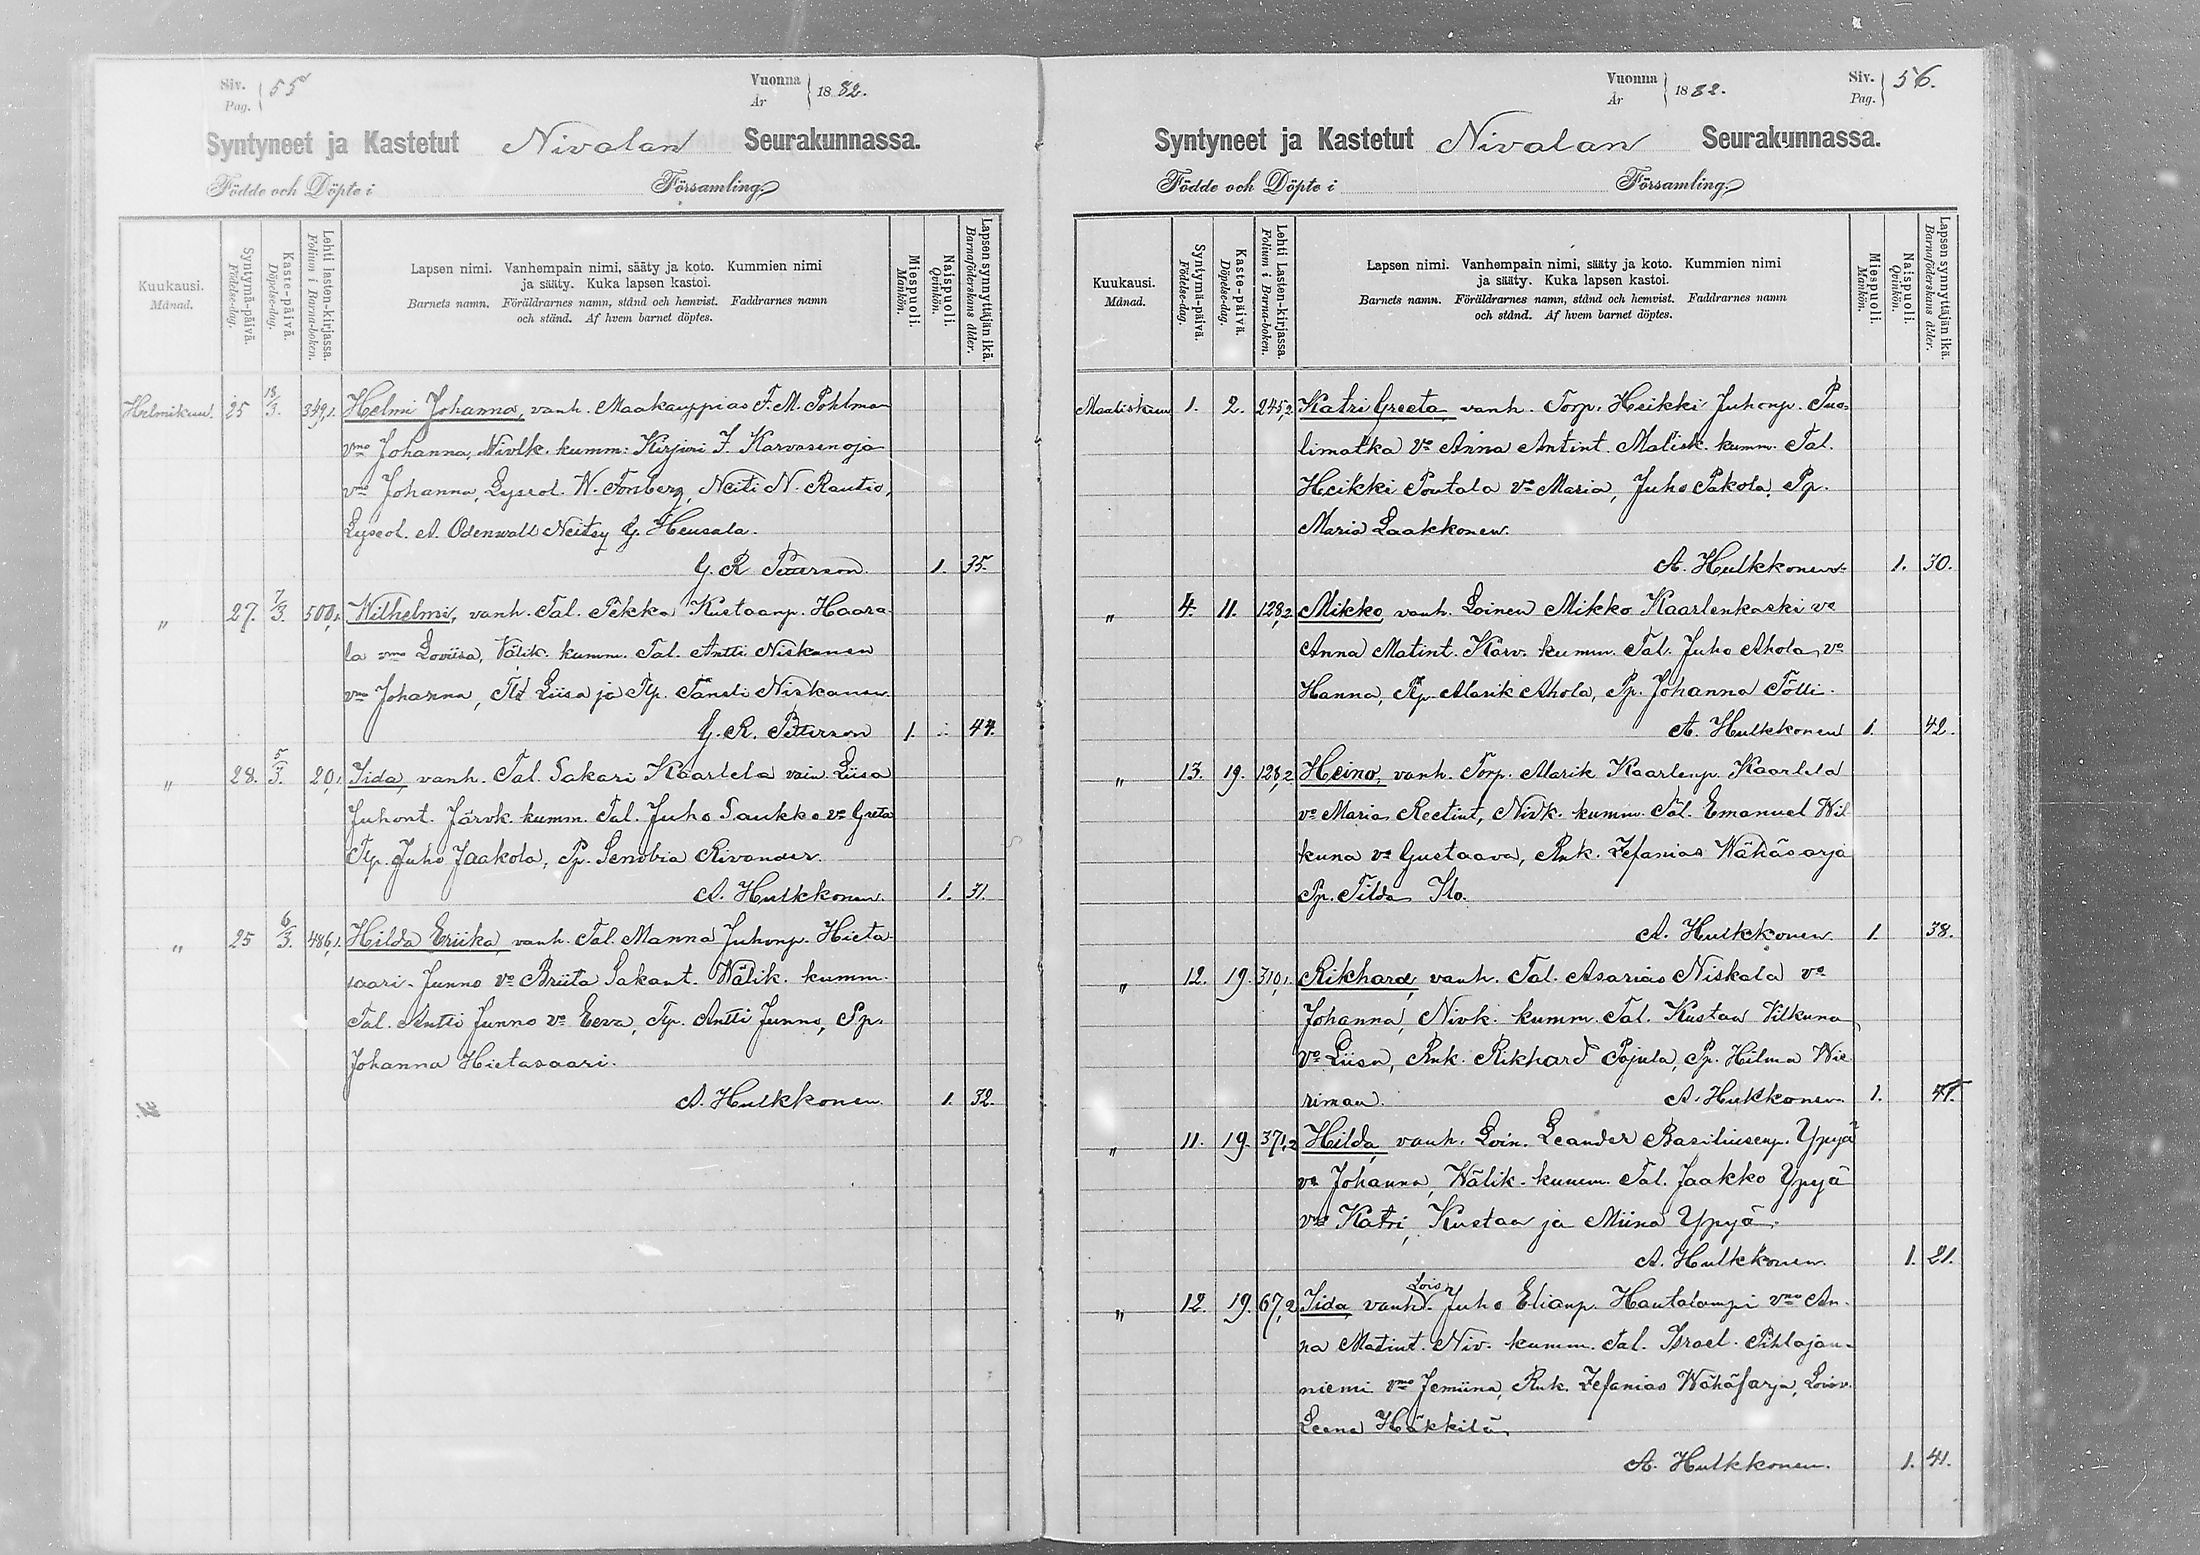 Siv. Pag. 55
Vuonna År 1882.
Syntyneet ja Kastetut Nivalan Seurakunnassa.
Födde och Döpte i Församling.
Kuukausi. Månad.
Syntymä-päivä. Födelse-dag.
Kaste-päivä. Döpelse-dag.
Lehti lasten-kirjassa. Folium i Barna-boken.
Lapsen nimi. Vanhempain nimi, sääty ja koto. Kummien nimi
ja sääty. Kuka lapsen kastoi.
Barnets namn. Föräldrarnes namn, stånd och hemvist. Faddrarnes namn
och stånd. Af hvem barnet döptes.
Miespuoli. Mankön.
Naispuoli. Qvinkön.
Lapsen synnyttäjän ikä. Barnaföderskans ålder.
Helmikuu. 25 18/3. 349,1. Helmi Johanna, vanh. Maakauppias F. M. Pohlman
vmo Johanna, Nivlk. kumm: Kirjuri J. Karvasenoja
vmo Johanna, Lyseol. W. Forsberg, Neiti N. Rautio,
Lyseol. A. Odenwall Neitsy G. Heusala.
G. R. Petterson. 1. 35.
" 27. 7/3. 500,1. Wilhelmi, vanh. Tal. Pekka Kustaanp. Haara-
la vmo Loviisa, Välik. kumm. Tal. Antti Niskanen
vmo Johanna, Tlt Liisa ja Tlp. Taneli Niskanen.
G. R. Petterson 1. 44.
" 28. 5/3. 20,1 Iida, vanh. Tal. Sakari Kaarlela vain. Liisa
Juhont. Järvk. kumm. Tal. Juho Saukko vo Greta
Tlp. Juho Jaakola, Pp. Senobia Rivander.
A. Hulkkonen. 1. 31.
" 25 6/3. 486,1. Hilda Eriika, vanh. Tal. Manna Juhonp. Hieta-
saari-Junno vo Briita Sakant. Wälik. kumm.
Tal. Antti Junno vo Eeva, Tlp. Antti Junno, Pp.
Johanna Hietasaari.
A. Hulkkonen. 1. 32.
Vuonna År 1882.
Siv. Pag. 56.
Syntyneet ja Kastetut Nivalan Seurakunnassa.
Födde och Döpte i Församling.
Kuukausi. Månad.
Syntymä-päivä. Födelse-dag.
Kaste-päivä. Döpelse-dag.
Lehti Lasten-kirjassa. Folium i Barna-boken.
Lapsen nimi. Vanhempain nimi, sääty ja koto. Kummien nimi
ja sääty. Kuka lapsen kastoi.
Barnets namn. Föräldrarnes namn, stånd och hemvist. Faddrarnes namn
och stånd. Af hvem barnet döptes.
Miespuoli. Mankön.
Naispuoli. Qvinkön.
Lapsen synnyttäjän ikä. Barnaföderskans ålder.
Maaliskuu 1. 2. 245,2 Katri Greeta vanh. Torp. Heikki Juhonp. Puo-
limatka vo Anna Antint. Malisk. kumm. Tal.
Heikki Poutala vo Maria, Juho Pakola, Pp.
Maria Laakkonen.
A. Hulkkonen. 1. 30.
" 4. 11. 128,2 Mikko, vanh. Loinen Mikko Kaarlenkoski vo
Anna Matint. Karv. kumm. Tal. Juho Ahola, vo
Hanna, Tlp. Alarik Ahola, Pp. Johanna Tölli.
A. Hulkkonen 1. 42.
" 13. 19. 128,2 Heino, vanh. Torp. Alarik Kaarlenp. Kaarlela
vo Maria Reetint, Nivk. kumm. Tal. Emanuel Wil-
kuna vo Gustaava, Rnk. Zefanias Wähäsarja
Pp. Tilda Ilo.
A. Hulkkonen. 1. 38.
" 12. 19. 310,1. Rikhard, vanh. Tal. Asarias Niskala vo
Johanna, Nivk. kumm. Tal. Kustaa Vilkuna
vo Liisa, Rnk. Rikhard Pajula, Pp. Hilma Wie-
riman. A. Hulkkonen. 1.
" 11. 19. 371,2 Hilda, vanh. Loin. Leander Basiliusenp. Ypyä
vo Johanna, Wälik. kumm. Tal. Jaakko Ypyä
vmo Katri, Kustaa ja Miina Ypyä.
A. Hulkkonen. 1. 21.
" 12. 19. 67,2 Iida, vanh. Lois. Juho Elianp. Hautalampi vmo An-
na Matint. Niv. kumm. Tal. Israel Pihlajan-
niemi vmo Jemiina, Rnk. Zefanias Wähäsarja, Lois.
Leena Häkkilä.
A. Hulkkonen. 1. 41.